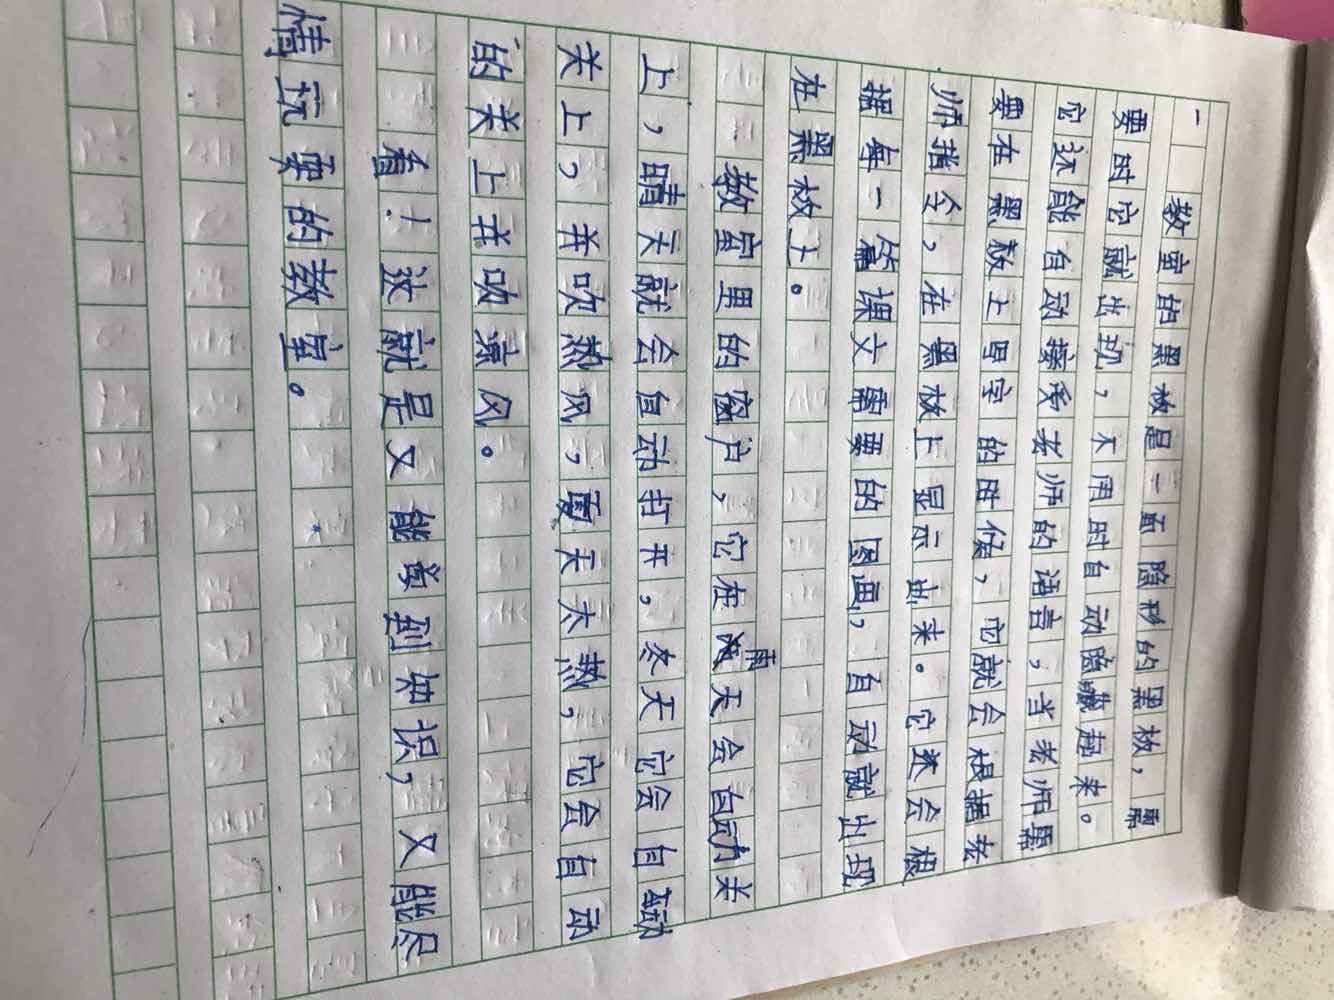 教室的黑板是一面隐形的黑板，需
要时它就出现，不用时自动隐藏起来。
它还能自动接受老师的语言，当老师需
要在黑板上写字的时候，它就会根据老
师指令，在黑板上显示出来。它还会根
据每一篇课文需要的图画，自动就出现
在黑板上。
教室里的窗户，它在雨天会自动关
上，晴天就会自动打开，冬天它会自动
关上，并吹热风，夏天太热，它会自动
的关上并吹凉风。
看！这就是又能学到知识，又能尽
情玩耍的教室。